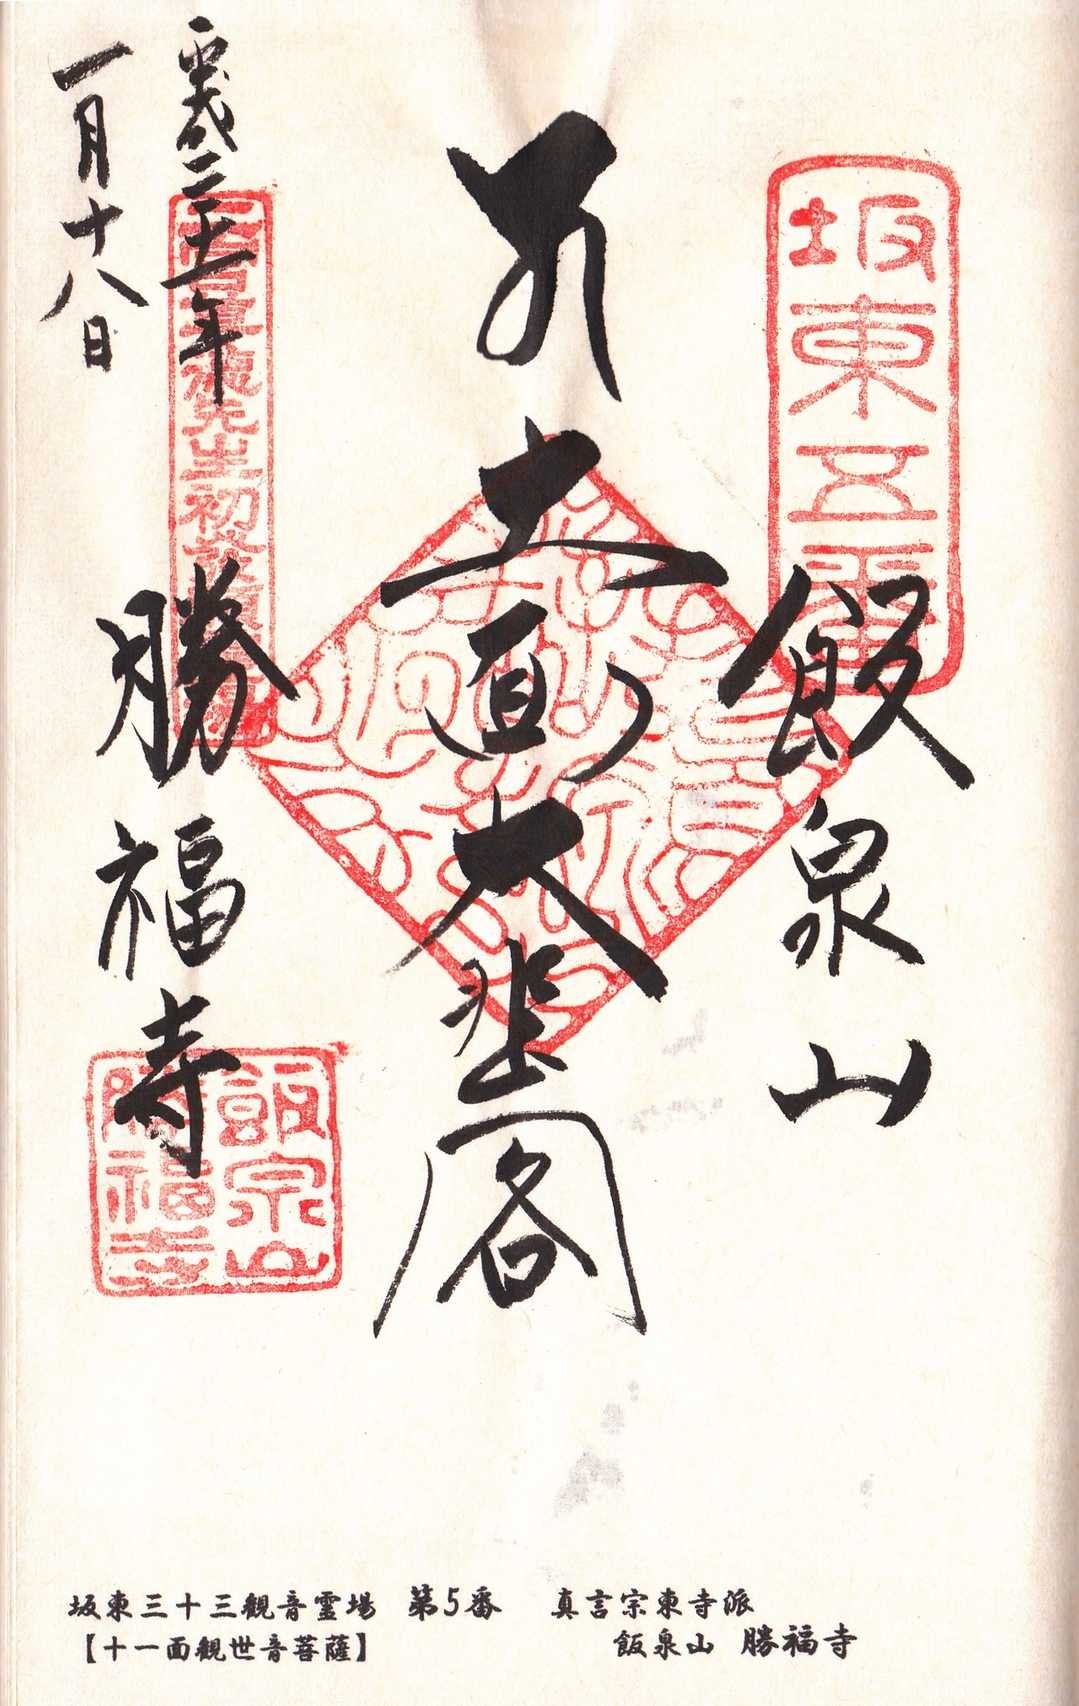 坂東五番
飯泉山
十一面大悲閣
平成二十一年
一月十八日
勝福寺
飯泉山
勝福寺
坂東三十三観音霊場 第5番 真言宗東寺派
【十一面観世音菩薩】 飯泉山 勝福寺